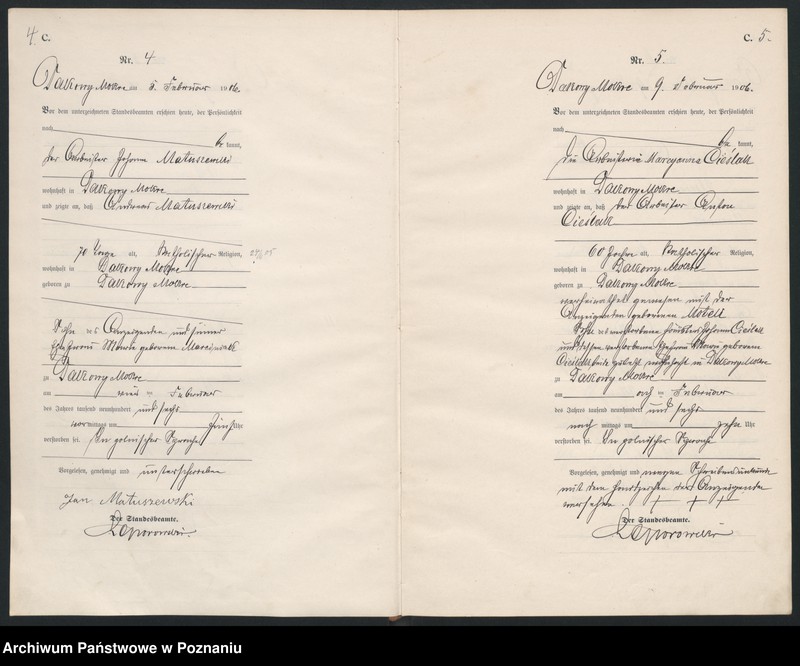 4. C.
Nr. 4
Dakowy Mokre am 5. Februar 1906.
Vor dem unterzeichneten Standesbeamten erschien heute, der Persönlichkeit
nach
be kannt,
der Arbeiter Johann Matuszewski
wohnhaft in Dakowy Mokre
und zeigte an, daß Andreas Matuszewski
70 Tage alt, katholischer Religion,
wohnhaft in Dakowy Mokre
geboren zu Dakowy Mokre
Sohn des Anzeigenden und seiner
Ehefrau Maria geborenen
zu Dakowy Mokre
am vier ten Februar
des Jahres tausend neunhundert und sechs
vor mittags um fünf Uhr
verstorben sei. In polnischer Sprache
Vorgelesen, genehmigt und unterschrieben
Jan Matuszewski
Der Standesbeamte.
C. 5.
Nr. 5.
Dakowy Mokre am 9. Februar 1906.
Vor dem unterzeichneten Standesbeamten erschien heute, der Persönlichkeit
nach
be kannt,
die Arbeiterin Maryanna Cieślak
wohnhaft in Dakowy Mokre
und zeigte an, daß der Arbeiter Anton
Cieślak
60 Jahre alt, katholischer Religion,
wohnhaft in Dakowy Mokre
geboren zu Dakowy Mokre
verheirathet gewesen mit der
Anzeigenden geborenen
Sohn des verstorbenen Johann Cieślak
und dessen verstorbene Ehefrau Maria geborenen
zuletzt wohnhaft in Dakowy Mokre
zu Dakowy Mokre
am acht ten Februar
des Jahres tausend neunhundert und sechs
nach mittags um zehn Uhr
verstorben sei. In polnischer Sprache
Vorgelesen, genehmigt und wegen Schreibensunkunde
mit dem Handzeichen der Anzeigenden
versehen. + + +
Der Standesbeamte.
Archiwum Państwowe w Poznaniu